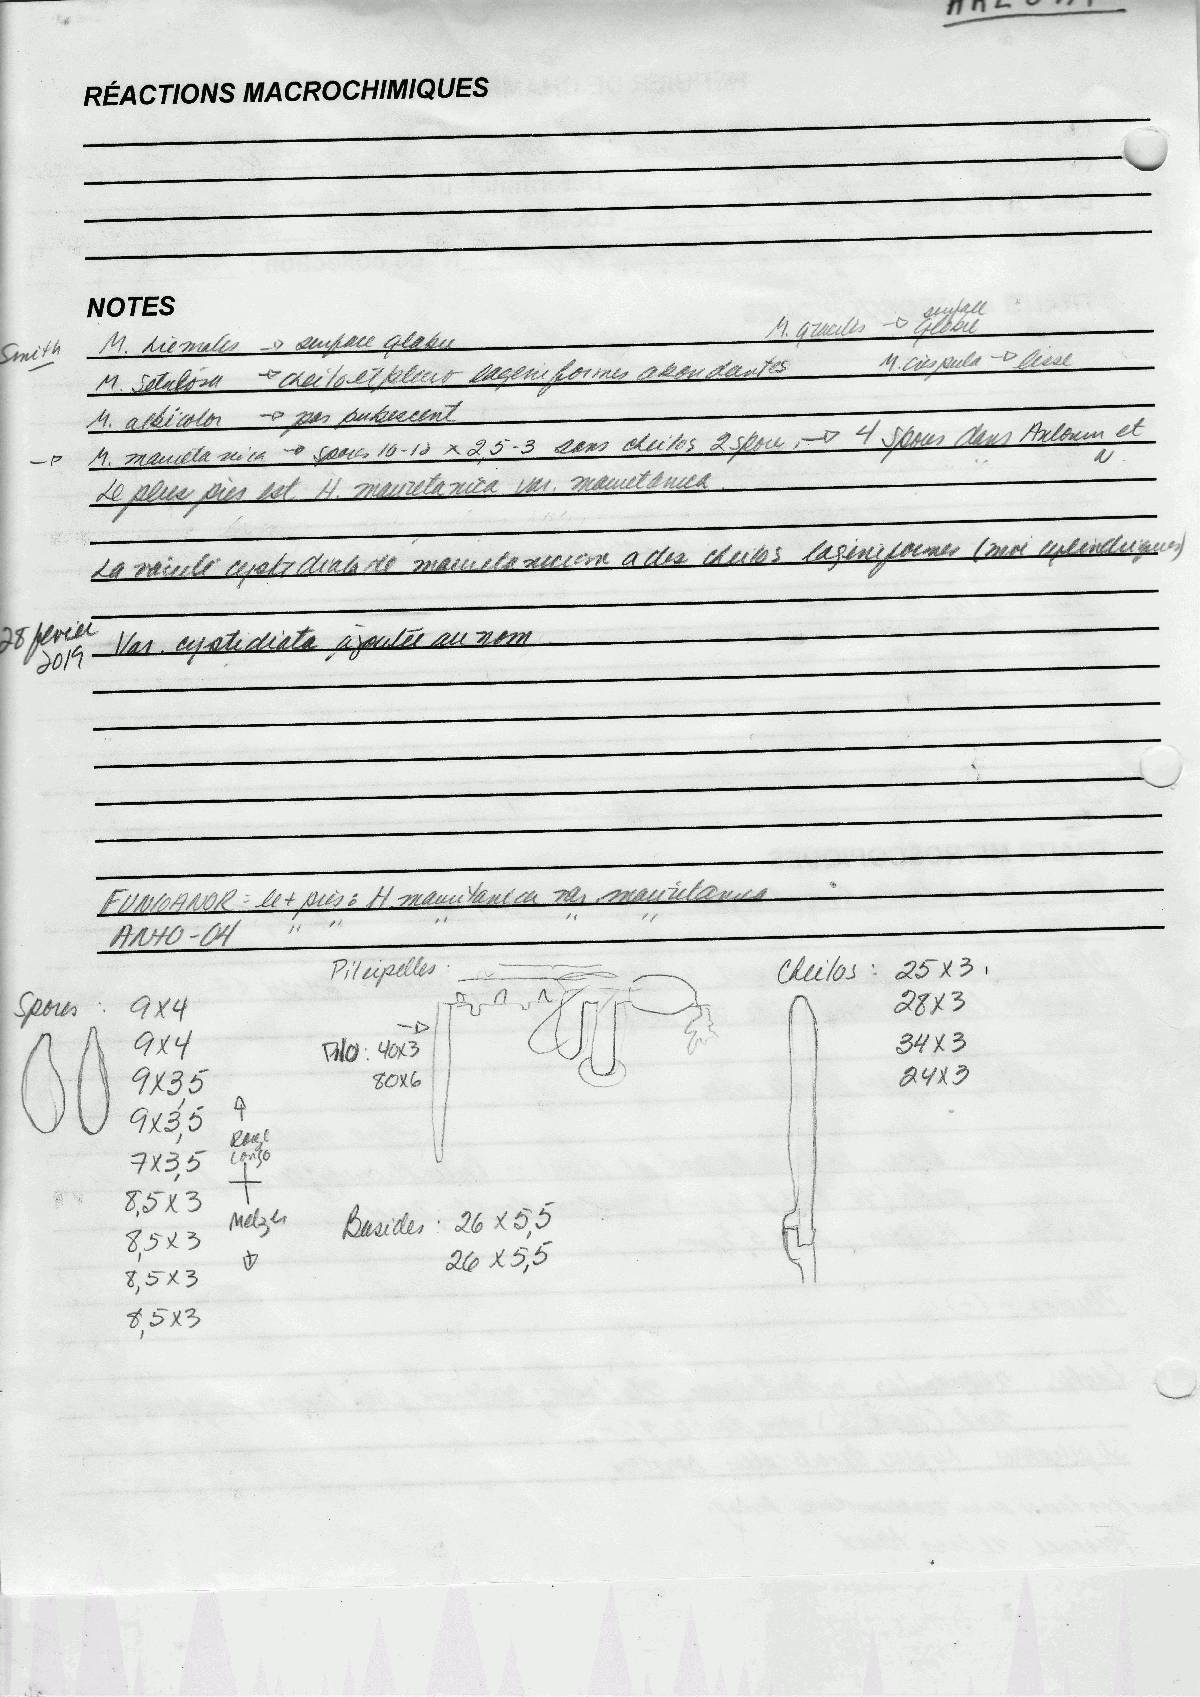 RÉACTIONS MACROCHIMIQUES
NOTES
Smith
M. hiemales → surface glabre
M. graciles → surface glabre
M. setulosa → cheilo et pleuro lageniformes abondantes
M. cuspula → lisse
M. albicolor → pas pubescent
→ M. mauretanica → spores 10-12 x 2,5-3 sans cheilos 2 spor. → 4 spores dans et
Le plus près est H. mauretanica var. mauretanica.
La variété cystidiata de a des cheilos lageniformes (moi cylindriques)
28 février 2019
Var. cystidiata ajoutée au nom
FUNGANOR = le + près : H. mauritanica var. mauritanica
ANHO-04 " " " " "
Pileipellis :
Cheilos : 25 x 3
28 x 3
34 x 3
24 x 3
Spores : 9 x 4
9 x 4
9 x 3,5
9 x 3,5
7 x 3,5
8,5 x 3
8,5 x 3
8,5 x 3
8,5 x 3
↑
Rouge
Congo
Melzer
↓
→
Pilo : 40x3
80x6
Basides : 26 x 5,5
26 x 5,5